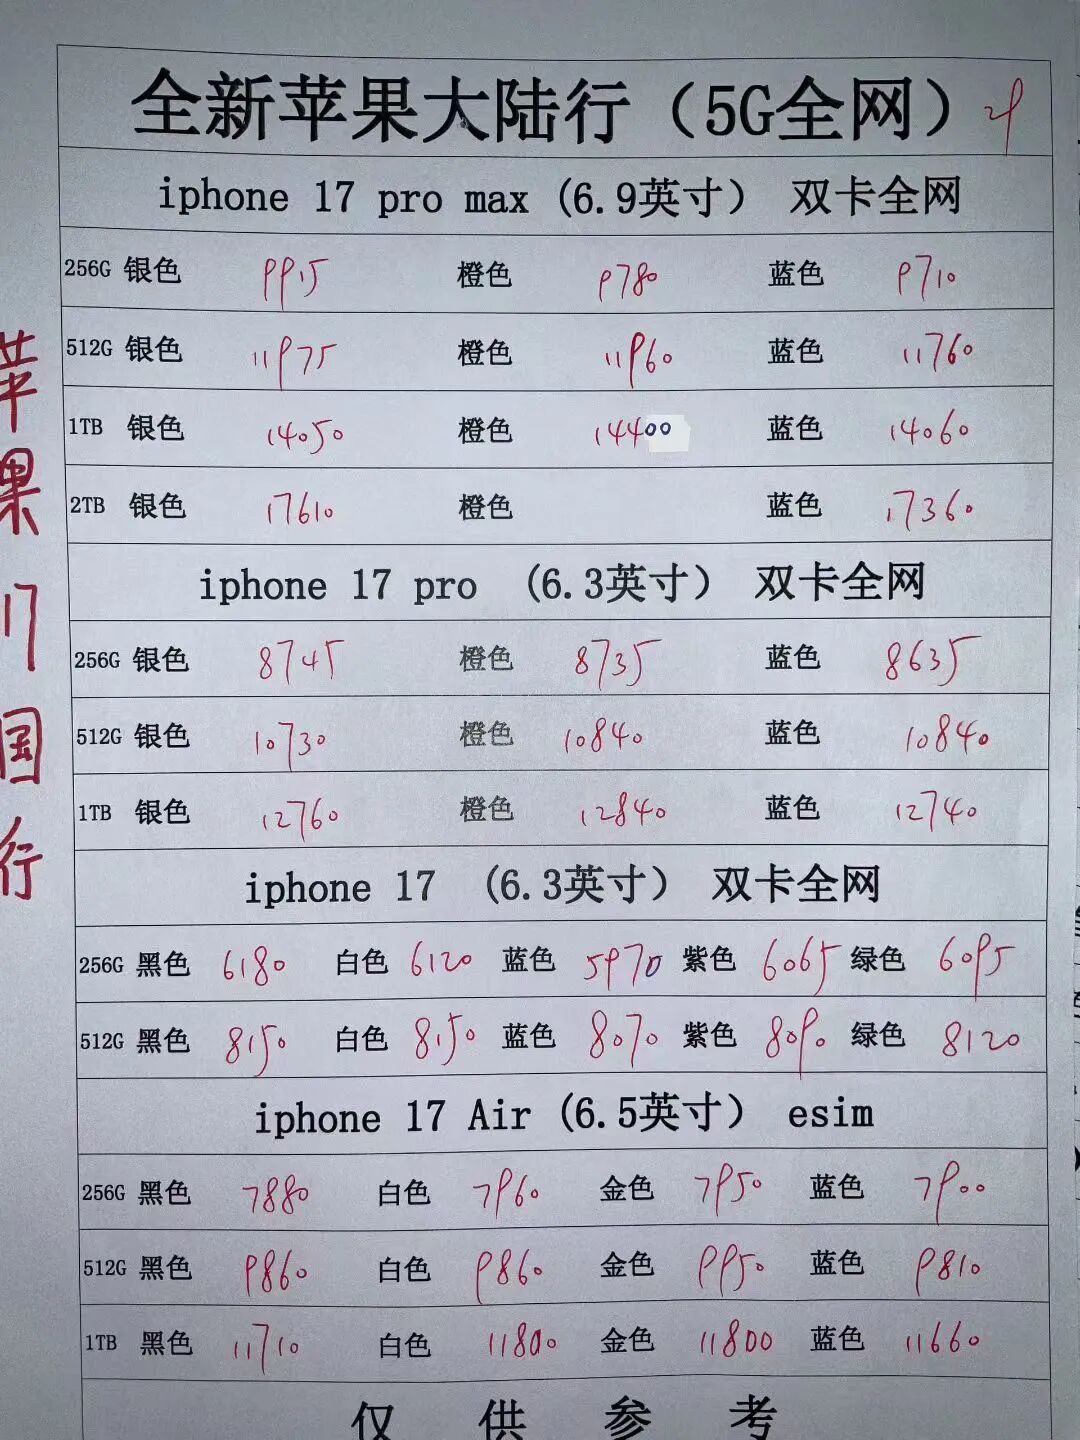 全新苹果大陆行（5G全网）
iphone 17 pro max (6.9英寸） 双卡全网
256G 银色 9915 橙色 9780 蓝色 9710
512G 银色 11975 橙色 11960 蓝色 11760
1TB 银色 14050 橙色 14400 蓝色 14060
2TB 银色 17610 橙色 蓝色 17360
iphone 17 pro （6.3英寸） 双卡全网
256G 银色 8745 橙色 8735 蓝色 8635
512G 银色 10730 橙色 10840 蓝色 10840
1TB 银色 12760 橙色 12840 蓝色 12740
iphone 17 （6.3英寸） 双卡全网
256G 黑色 6180 白色 6120 蓝色 5970 紫色 6065 绿色 6095
512G 黑色 8150 白色 8150 蓝色 8070 紫色 8090 绿色 8120
iphone 17 Air (6.5英寸） esim
256G 黑色 7880 白色 7960 金色 7950 蓝色 7900
512G 黑色 9860 白色 9860 金色 9950 蓝色 9810
1TB 黑色 11710 白色 11800 金色 11800 蓝色 11660
仅供参考
苹果17国行